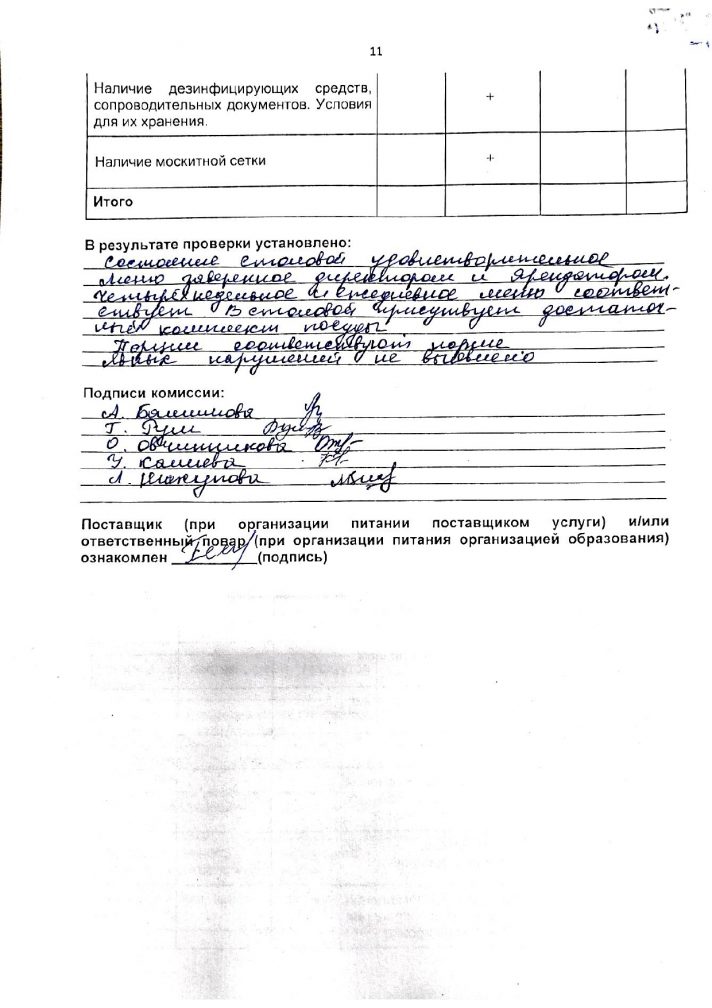 11
Наличие дезинфицирующих средств,
сопроводительных документов. Условия
для их хранения.
+
Наличие москитной сетки
+
Итого
В результате проверки установлено:
Состояние столовой удовлетворительное
Меню заверенное директором и Арендатором.
Четырехнедельное и ежедневное меню соответ-
ствует. В столовой присутвует достаточ-
ный комплект посуды
Порции соответствуют норме
нарушений не выявлено
Подписи комиссии:
А.
Г.
О. Овчинникова
У. Калиева
Л.
Поставщик (при организации питании поставщиком услуги) и/или
ответственный повар (при организации питания организацией образования)
ознакомлен (подпись)